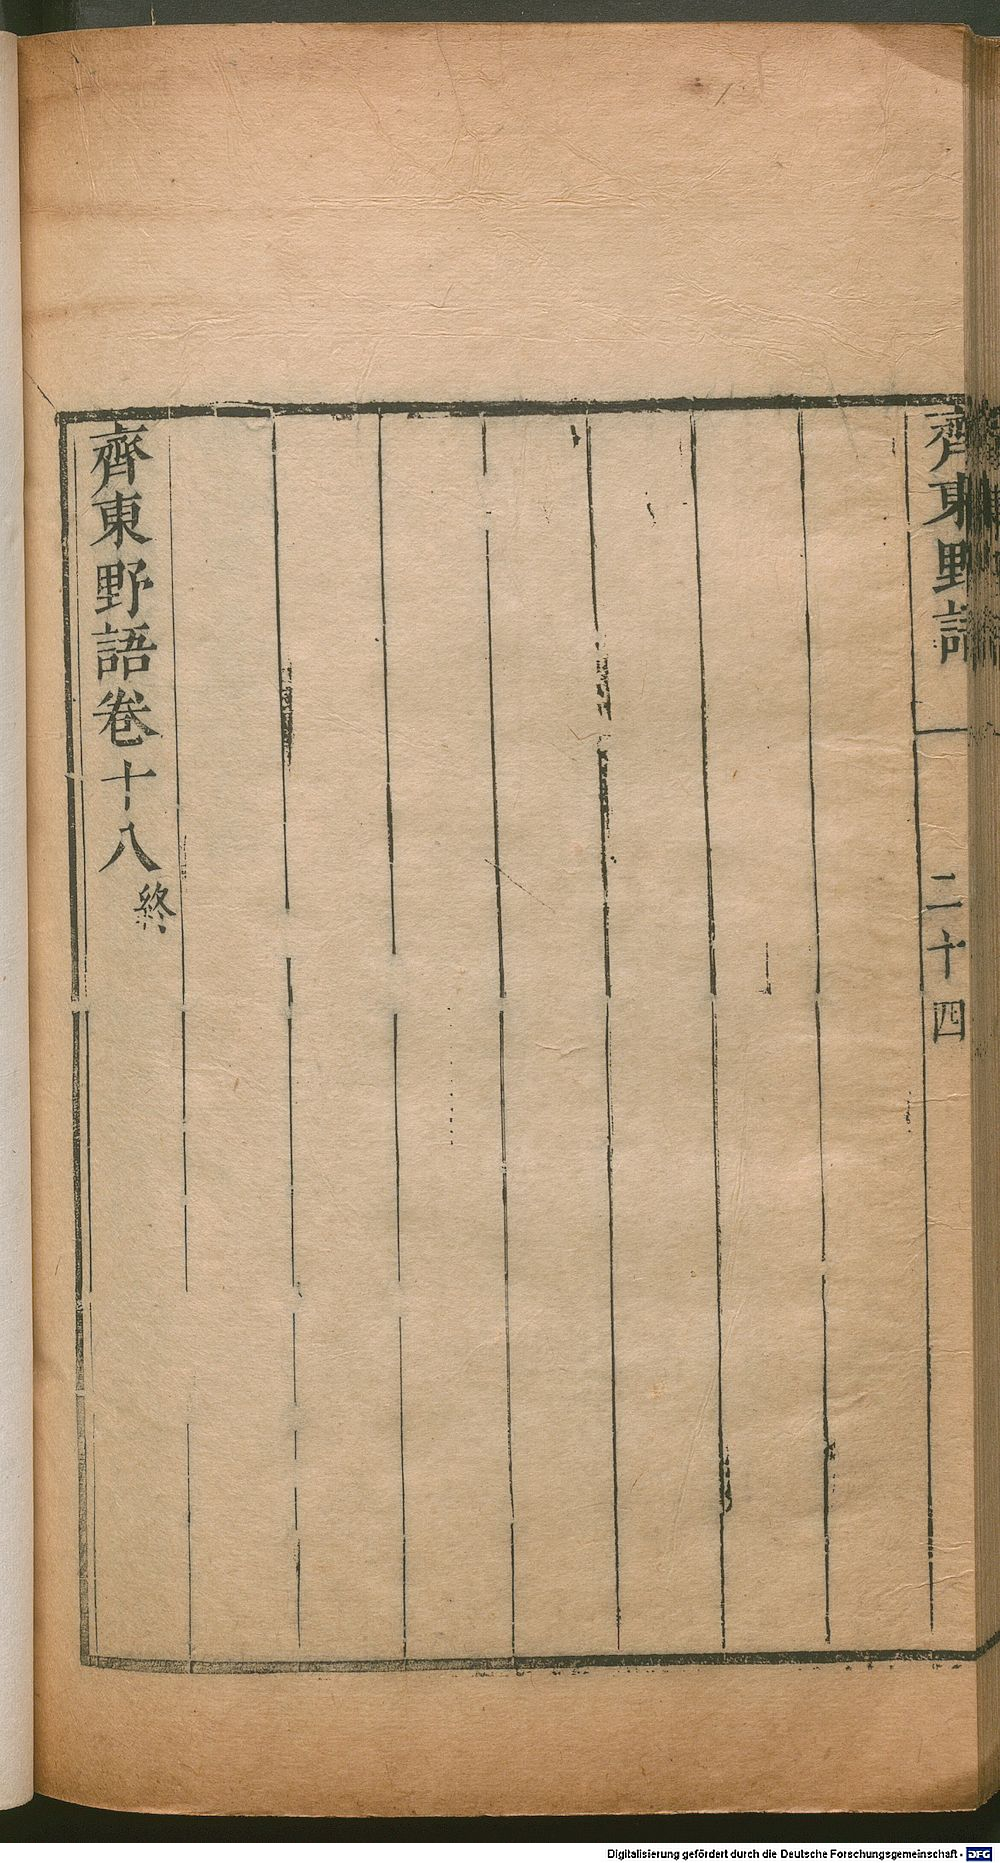 齊東野語
二十四
齊東野語卷十八終
Digitalisierung gefördert durch die Deutsche Forschungsgemeinschaft - DFG